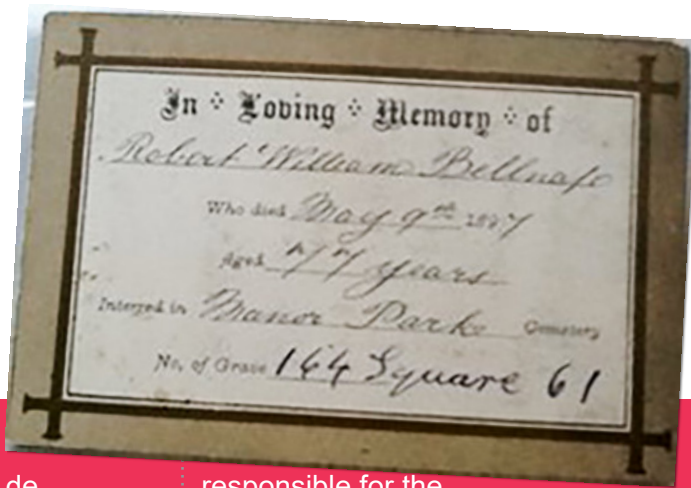 In Loving Memory of
Robert William Bellnap
Who died May 9th 1897
Aged 77 years
Interred in Manor Park Cemetery
No. of Grave 164 Square 61
de
responsible for the